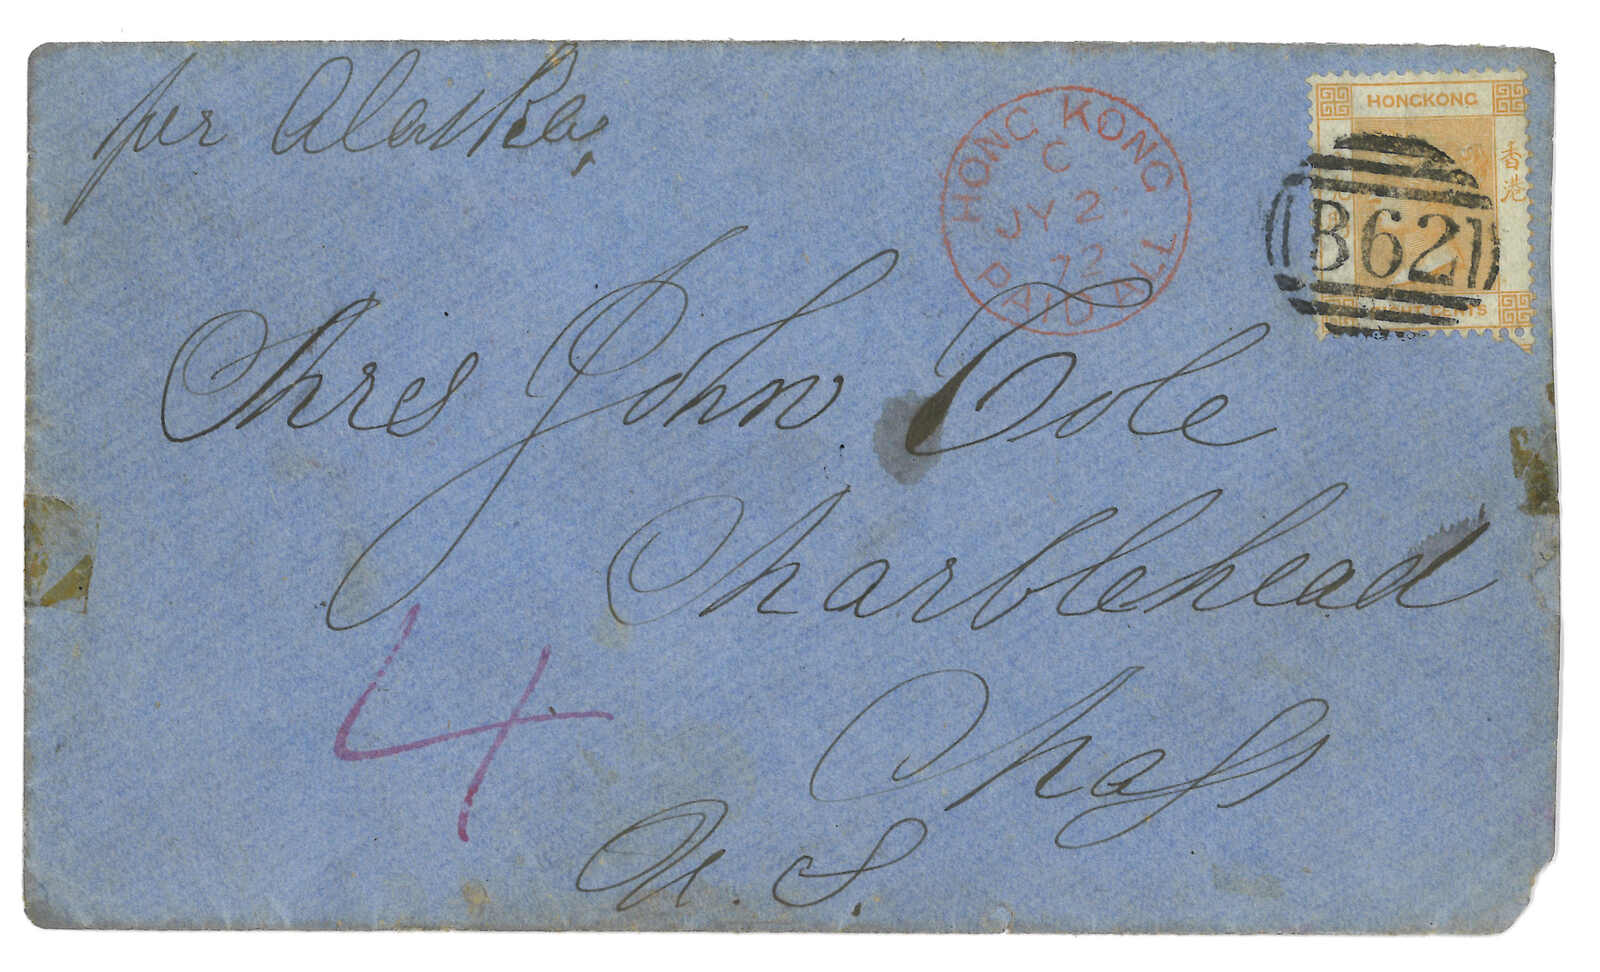 per Alaska,
HONG KONG
C
JY 2
72
PAID ALL
HONGKONG
香港
B62
CENTS
Mrs John Cole
Marblehead
Mass
4
U. S.